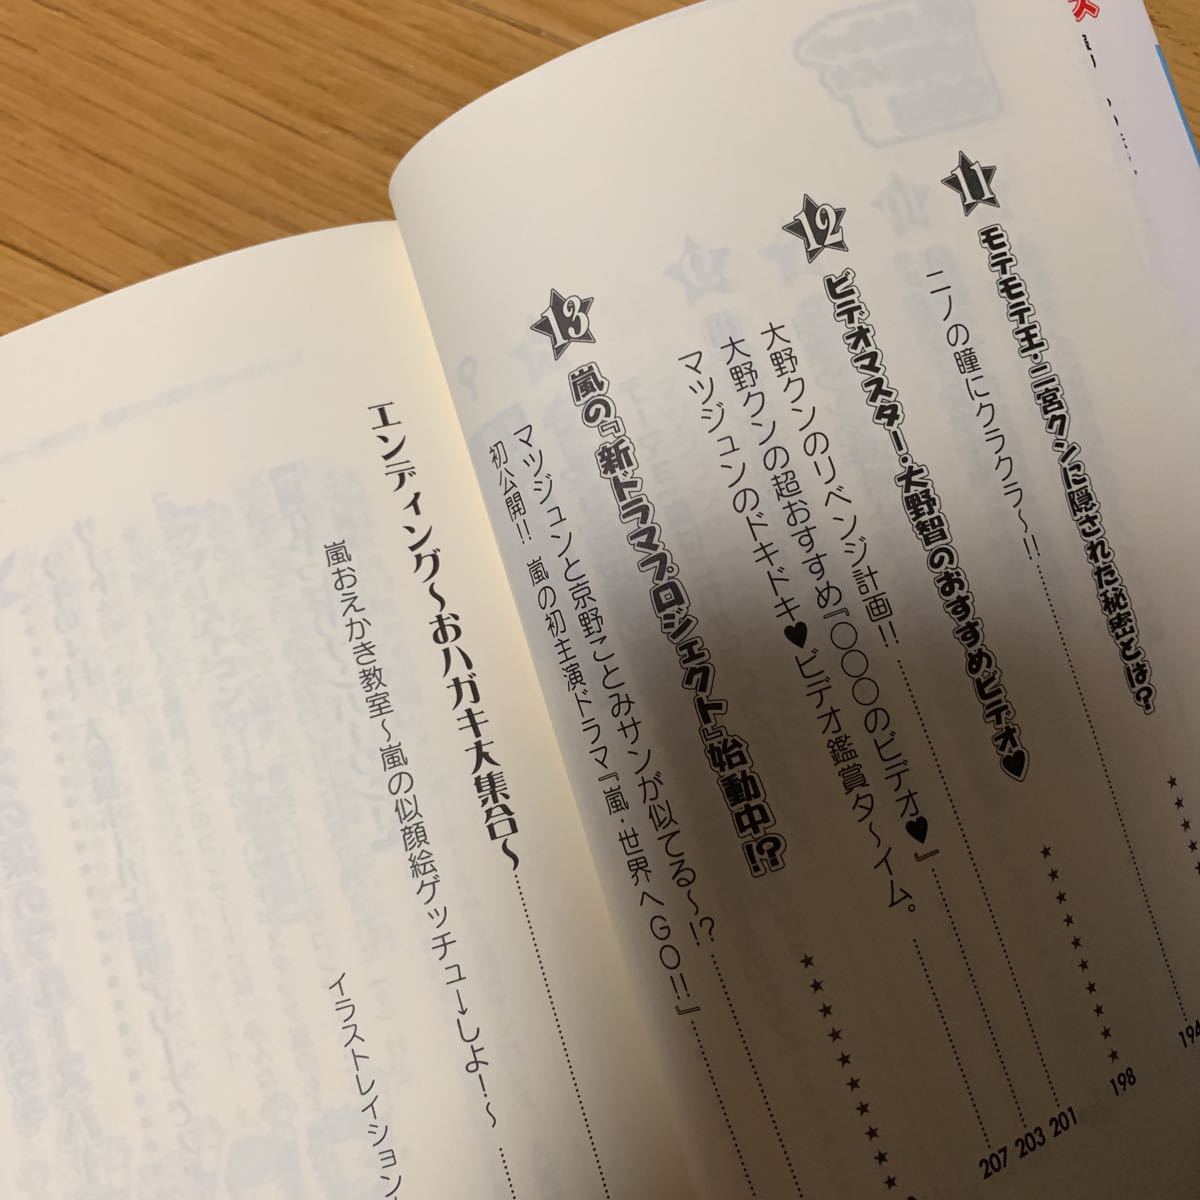 11 モテモテ王・二宮クンに隠された秘密とは?
194
ニノの瞳にクラクラ〜!!
12 ビデオマスター・大野智のおすすめビデオ♥
198
大野クンのリベンジ計画!!
201
大野クンの超おすすめ『〇〇〇のビデオ♥』
203
マツジュンのドキドキ♥ビデオ鑑賞タ〜イム。
207
13 嵐の『新ドラマプロジェクト』始動中!?
マツジュンと京野ことみサンが似てる〜!?
初公開!! 嵐の初主演ドラマ『嵐・世界へGO!!』
エンディング〜おハガキ大集合〜
嵐おえかき教室〜嵐の似顔絵ゲッチューしよ!〜
イラストレイション